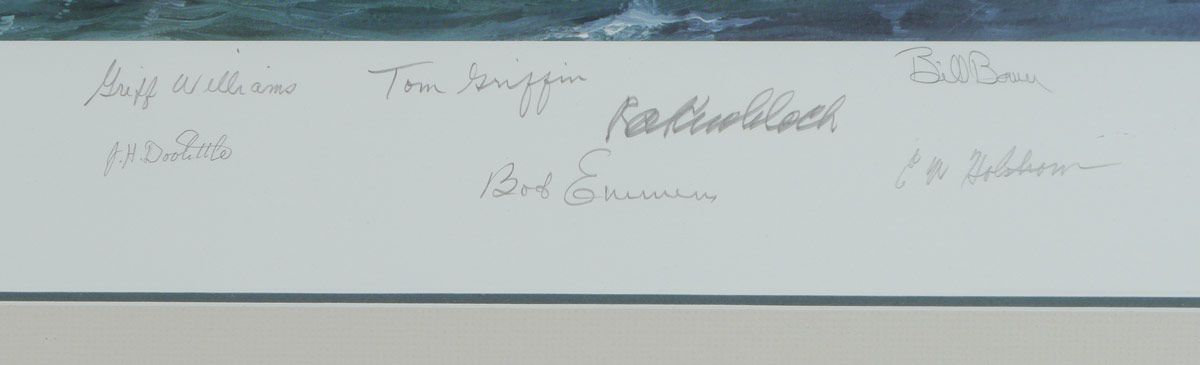 Griff Williams
Tom Griffin
Bill Bower
RA Knobloch
J.H. Doolittle
Bob Emmens
E W Holstrom